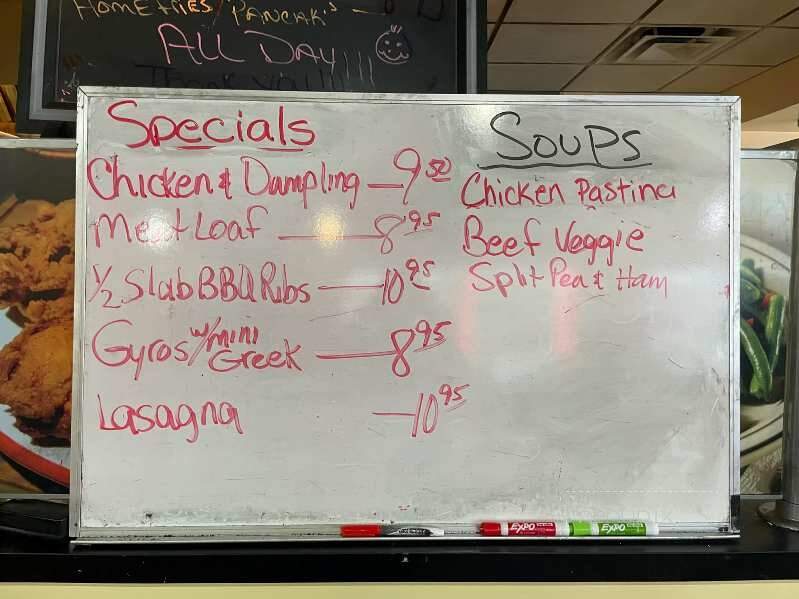 HOMEFRIES/PANCAK's
ALL DAY!!!
THANK YOU!!!!!!
Specials
Chicken & Dumpling — 9 50
Meat Loaf — 8 95
1/2 Slab BBQ Ribs — 10 95
Gyros w/mini Greek — 8 95
Lasagna — 10 95
SOUPS
Chicken Pastina
Beef Veggie
Split Pea & Ham
EXPO
EXPO